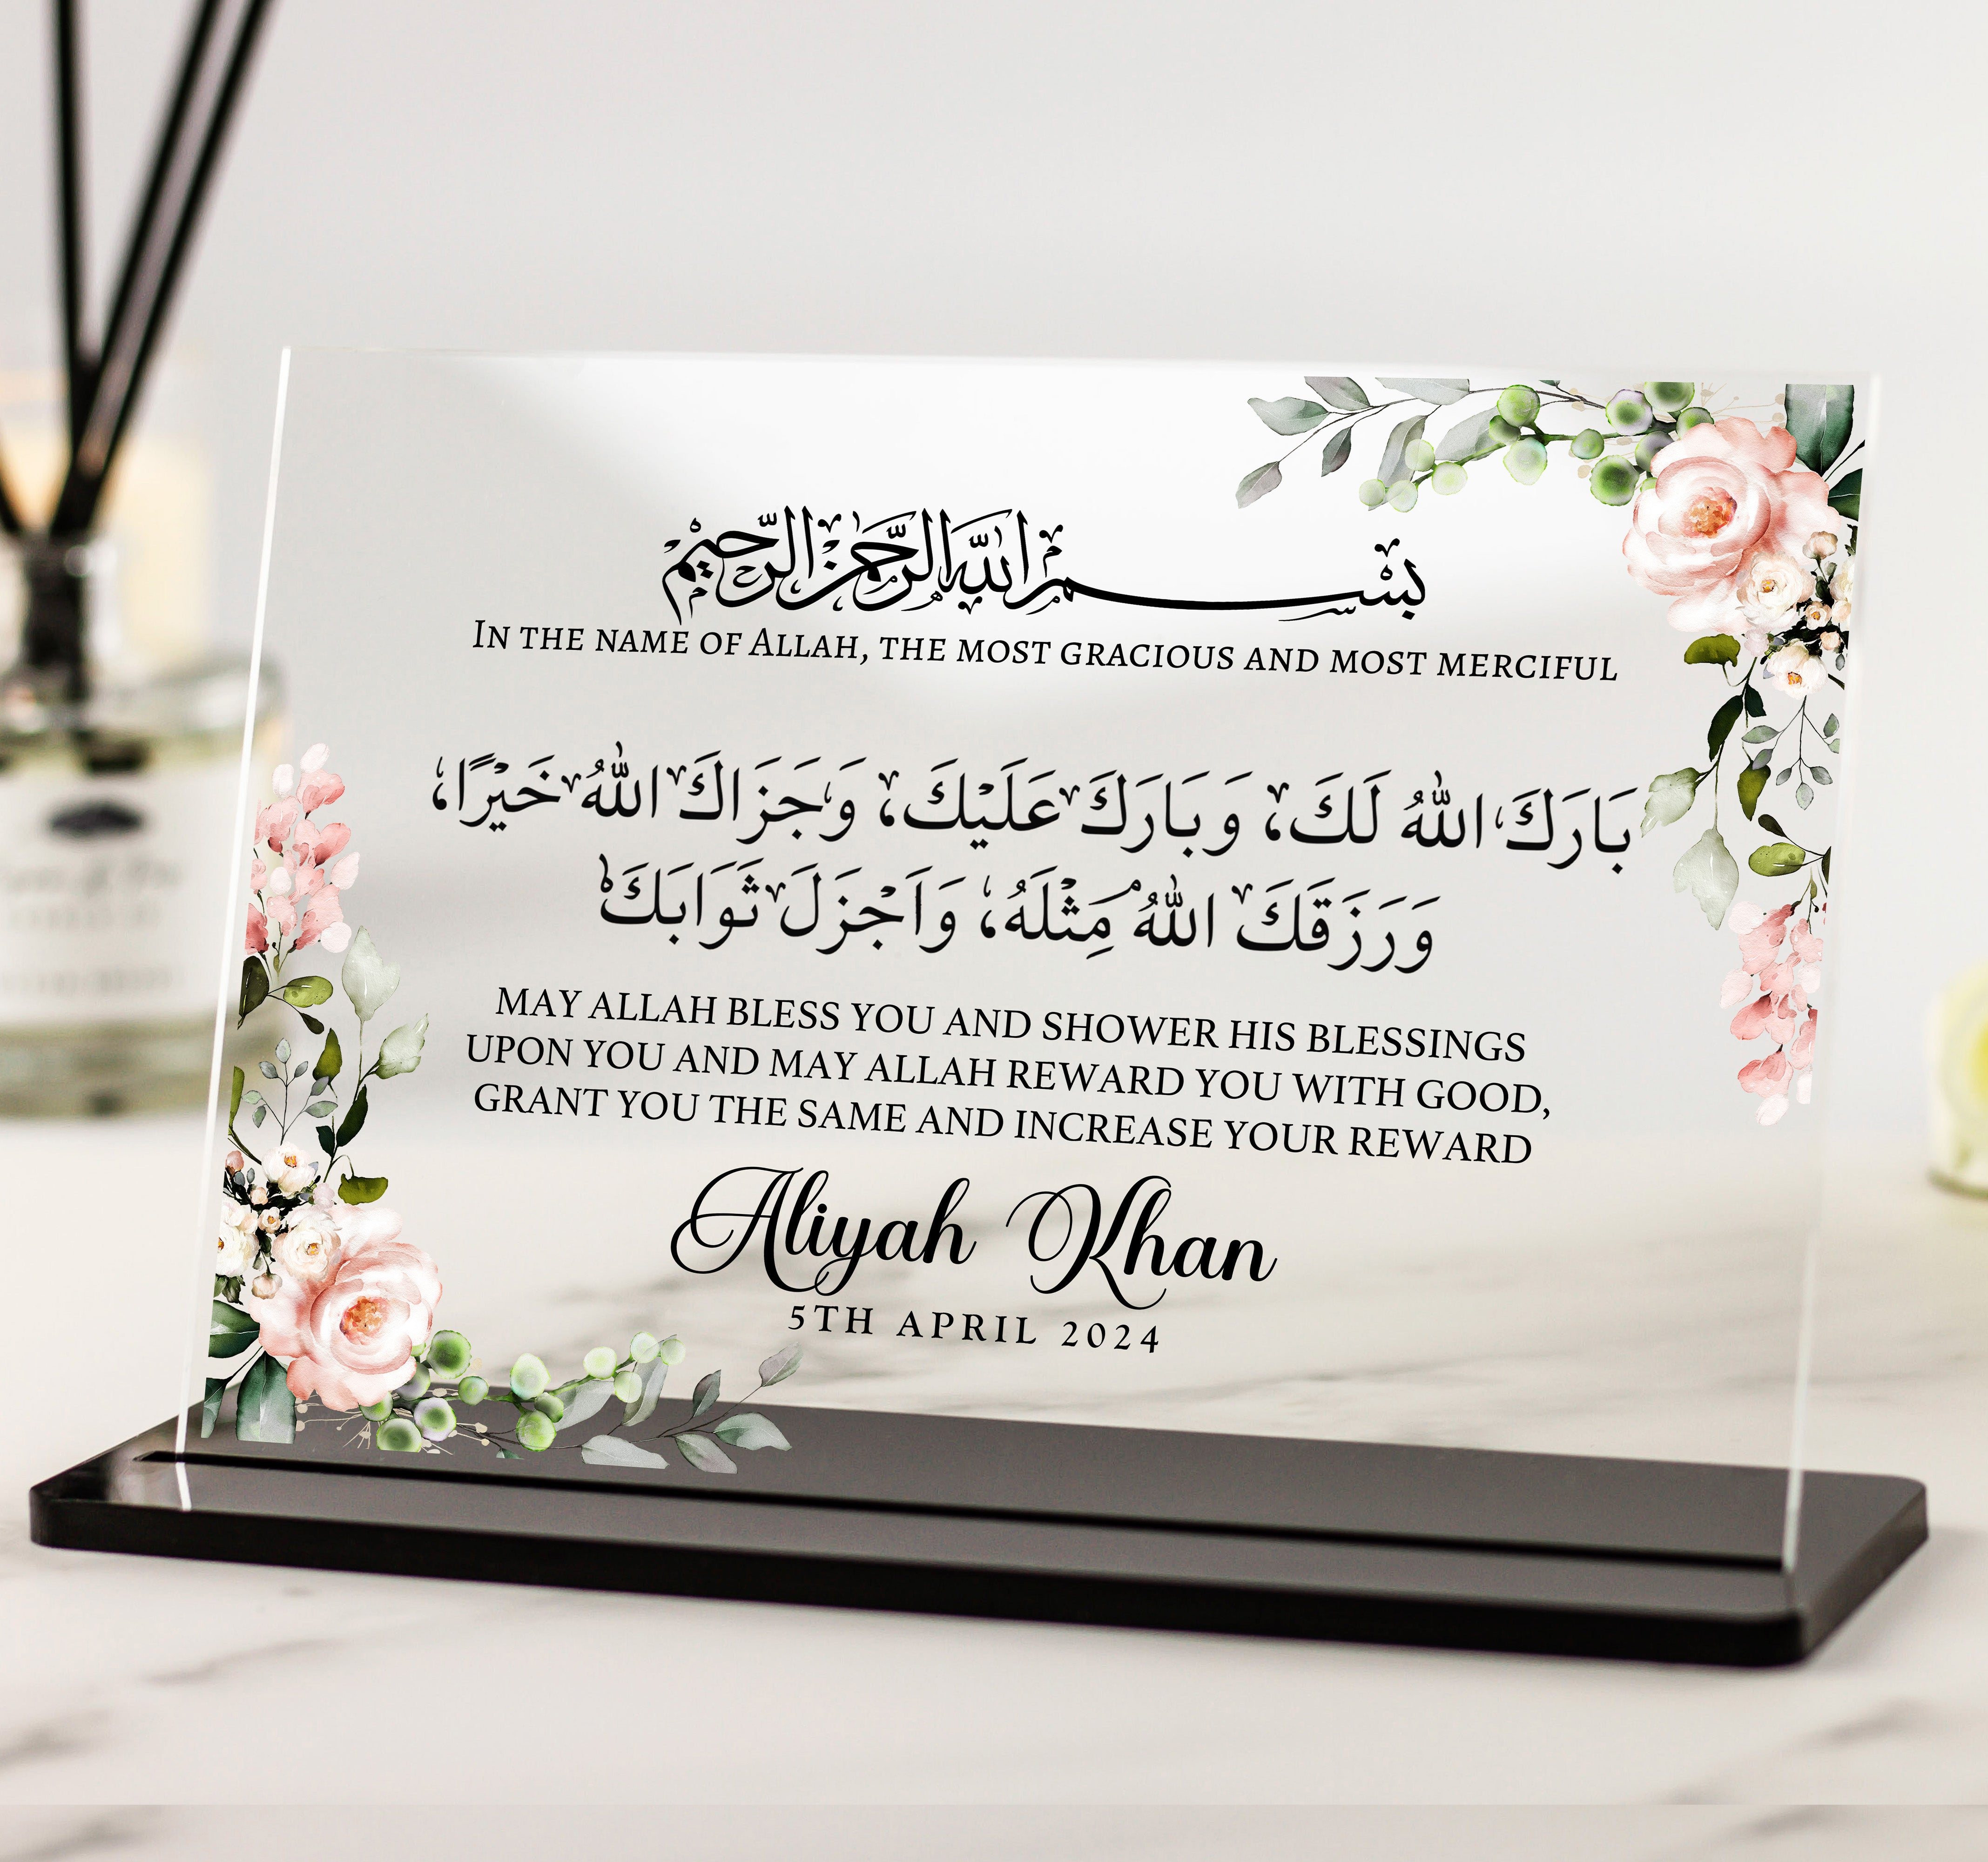 بِسْمِ اللهِ الرَّحْمٰنِ الرَّحِيْمِ
In the name of Allah, the most gracious and most merciful
بَارَكَ اللهُ لَكَ، وَبَارَكَ عَلَيْكَ، وَجَزَاكَ اللهُ خَيْرًا،
وَرَزَقَكَ اللهُ مِثْلَهُ، وَاَجْزَلَ ثَوَابَكَ
MAY ALLAH BLESS YOU AND SHOWER HIS BLESSINGS
UPON YOU AND MAY ALLAH REWARD YOU WITH GOOD,
GRANT YOU THE SAME AND INCREASE YOUR REWARD
Aliyah Khan
5TH APRIL 2024